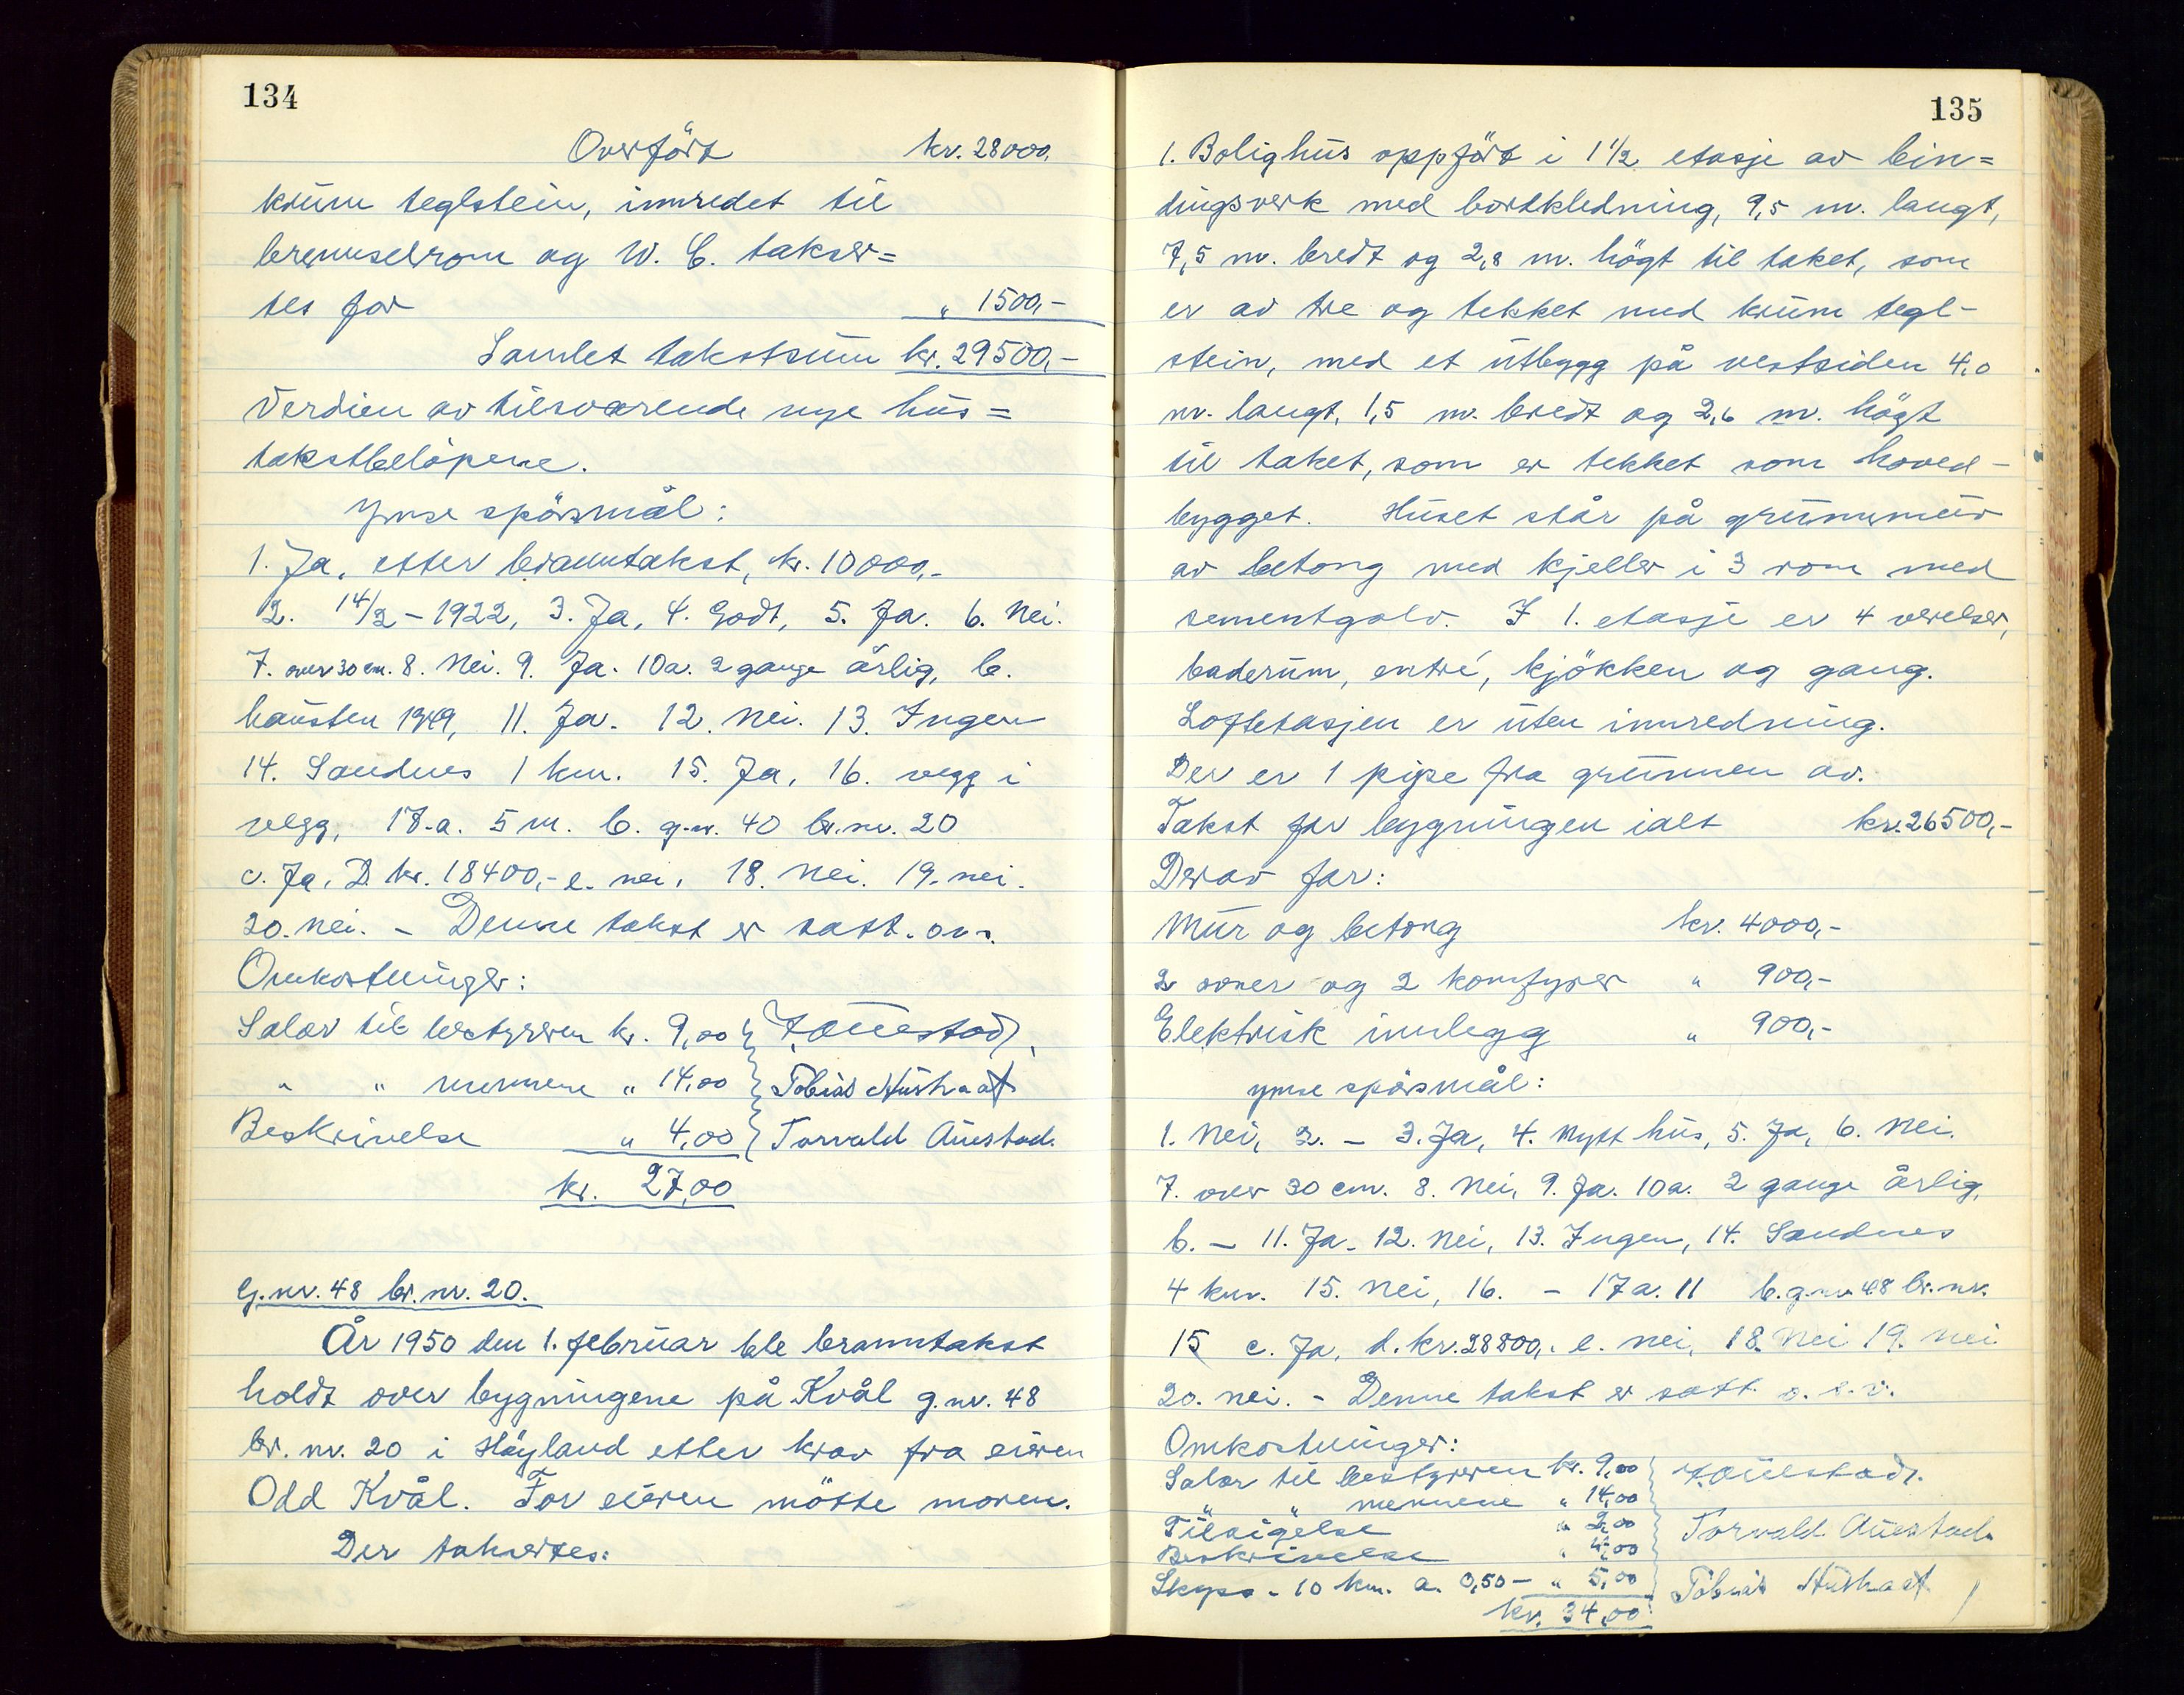 134
Overført kr. 28000,
krum teglstein, innredet til
brennselrom og W. C. takser=
tes for " 1500,-
Samlet takstsum kr. 29500,-
Verdien av tilsvarende nye hus =
takstbeløpene.
Ymse spörsmål:
1. Ja, etter branntakst, kr. 10000,-
2. 14/2 - 1922, 3. Ja, 4. Godt, 5. Ja. 6. Nei.
7. over 30 cm. 8. Nei. 9. Ja. 10a. 2 gange årlig, b.
hausten 1949, 11. Ja. 12. Nei. 13. Ingen
14. Sandnes 1 km. 15. Ja, 16. vegg i
vegg, 17.a. 5 m. b. g.nr. 40 br.nr. 20
c. Ja, D. kr. 18400,- e. nei, 18. Nei. 19. nei.
20. nei. - Denne takst er satt. o.s.v.
Omkostninger:
Salar til bestyreren kr. 9,00 } Auestad.
" " mennene " 14,00 } Tobias
Beskrivelse " 4,00 } Torvald Auestad.
kr. 27,00
G.nr. 48 br. nr. 20.
År 1950 den 1. februar ble branntakst
holdt over bygningene på Kvål g.nr. 48
br. nr. 20 i Høyland etter krav fra eieren
Odd Kvål. For eieren mötte moren.
Der takertes:
135
1. Bolighus oppfört i 1 1/2 etasje av bin=
dingsverk med bordkledning, 9,5 m. langt,
7,5 m. bredt og 2,8 m. högt til taket, som
er av tre og tekket med krum tegl-
stein, med et utbygg på vestsiden 4,0
m. langt, 1,5 m. bredt og 2,6 m. högt
til taket, som er tekket som hoved-
bygget. Huset står på grunnmur
av betong med kjeller i 3 rom med
sementgolv. I 1. etasje er 4 verelser,
baderum, entré, kjökken og gang.
Loftetasjen er uten innredning.
Der er 1 pipe fra grunnen av.
Takst for bygningen ialt kr. 26500,-
Derav for:
Mur og betong kr. 4000,-
2 ovner og 2 komfyrer " 900,-
Elektrisk innlegg " 900,-
ymse spörsmål:
1. Nei, 2. - 3. Ja, 4. Nytt hus, 5. Ja, 6. Nei.
7. over 30 cm. 8. Nei, 9. Ja. 10a. 2 gange årlig,
b. - 11. Ja. 12. Nei, 13. Ingen, 14. Sandnes
4 km. 15. Nei, 16. - 17a. 11 b. g.nr. 48 br. nr.
15 c. Ja, d. kr. 28800,- e. nei, 18. Nei 19. nei
20. nei. - Denne takst er satt o. s. v.
Omkostninger:
Salar til bestyreren kr. 9,00 Auestad.
" " mennene " 14,00
Tilsigelse " 2,00 Torvald Auestad.
Beskrivelse " 4,00
Skyss - 10 km. a. 0,50 - " 5,00 Tobias
kr. 34,00